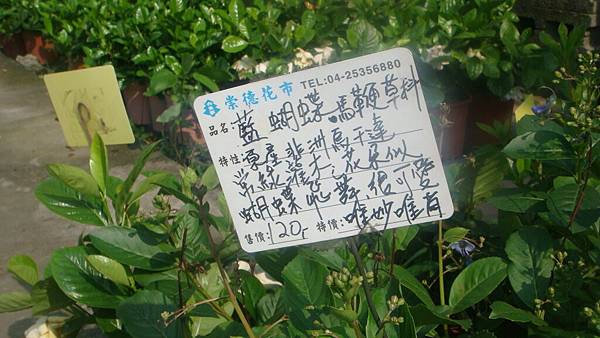 崇德花市 TEL:04-25356880
品名:藍蝴蝶.馬鞭草科
特性:原產非洲烏干達
常綠灌木;花色似
蝴蝶飛舞很可愛
售價:120.- 特價:唯妙唯肖